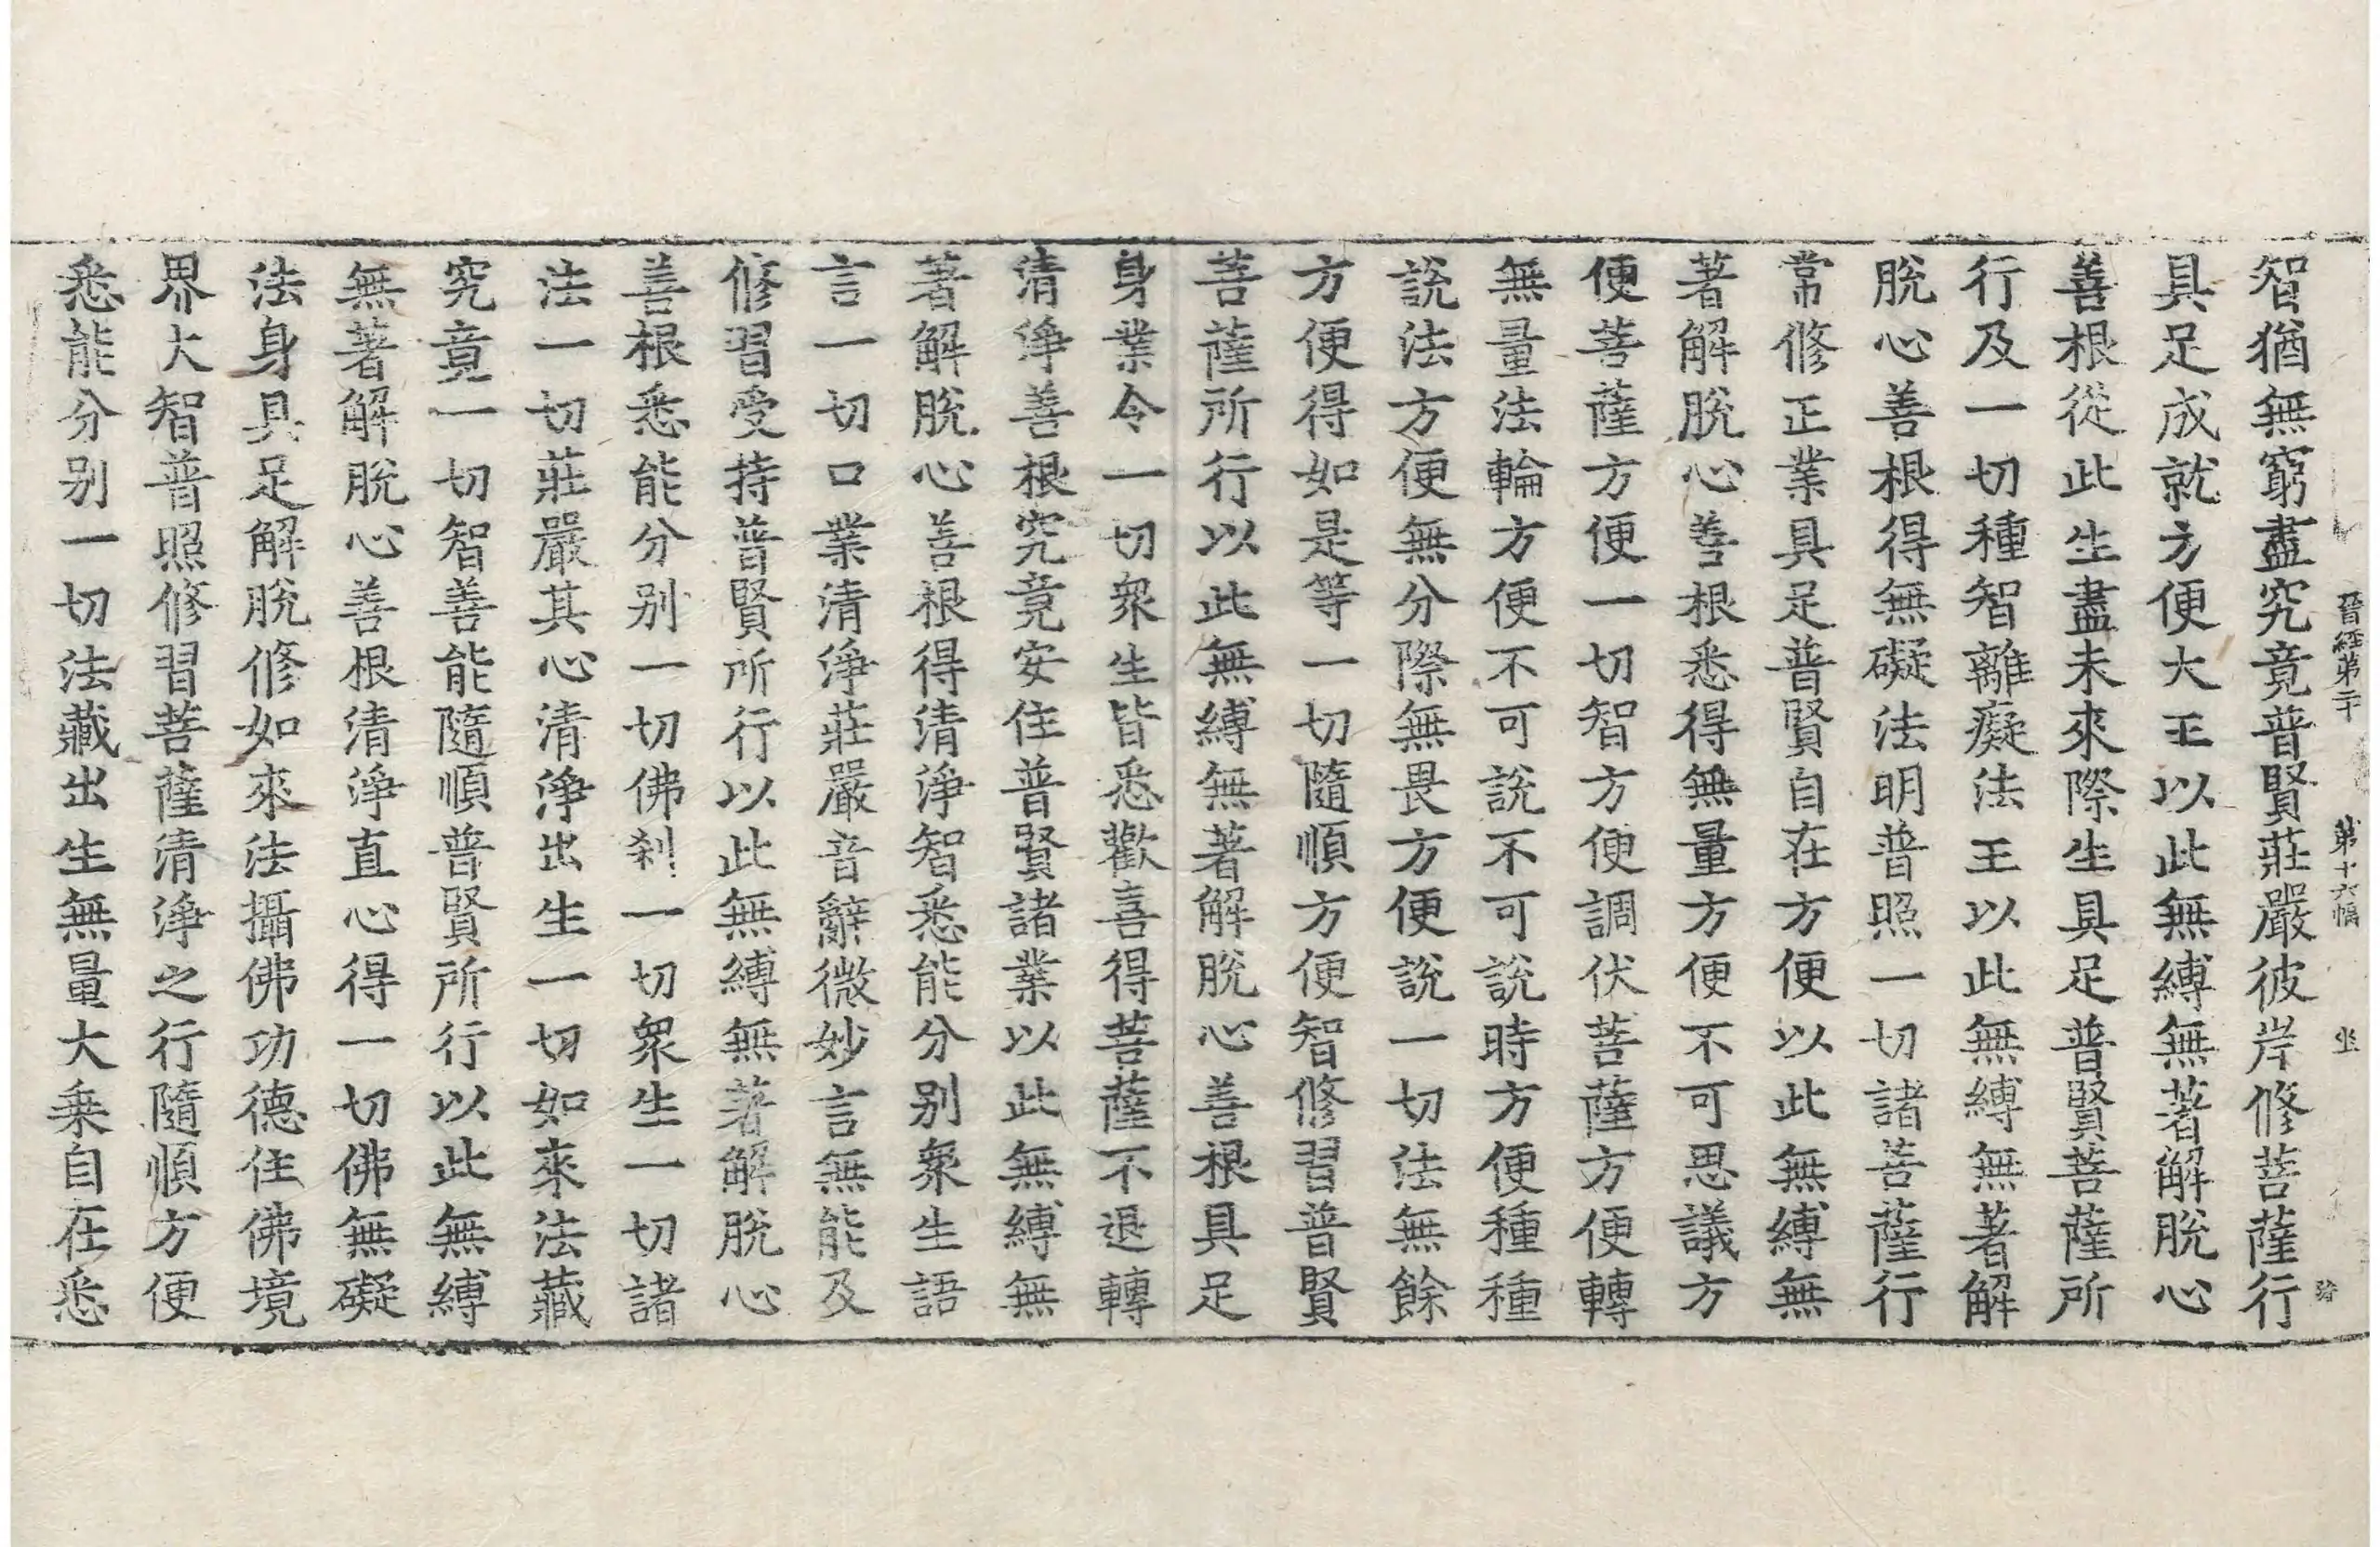 晉經第二十 第十六幅 坐
智猶無窮盡究竟普賢莊嚴彼岸修菩薩行
具足成就方便大王以此無縛無著解脫心
善根從此生盡未來際生具足普賢菩薩所
行及一切種智離癡法王以此無縛無著解
脫心善根得無礙法明普照一切諸菩薩行
常修正業具足普賢自在方便以此無縛無
著解脫心善根悉得無量方便不可思議方
便菩薩方便一切智方便調伏菩薩方便轉
無量法輪方便不可說不可說時方便種種
說法方便無分際無畏方便說一切法無餘
方便得如是等一切隨順方便智修習普賢
菩薩所行以此無縛無著解脫心善根具足
身業令一切眾生皆悉歡喜得菩薩不退轉
清淨善根究竟安住普賢諸業以此無縛無
著解脫心善根得清淨智悉能分別眾生語
言一切口業清淨莊嚴音辭微妙言無能及
修習受持普賢所行以此無縛無著解脫心
善根悉能分別一切佛剎一切眾生一切諸
法一切莊嚴其心清淨出生一切如來法藏
究竟一切智善能隨順普賢所行以此無縛
無著解脫心善根清淨直心得一切佛無礙
法身具足解脫修如來法攝佛功德住佛境
界大智普照修習菩薩清淨之行隨順方便
悉能分別一切法藏出生無量大乘自在悉